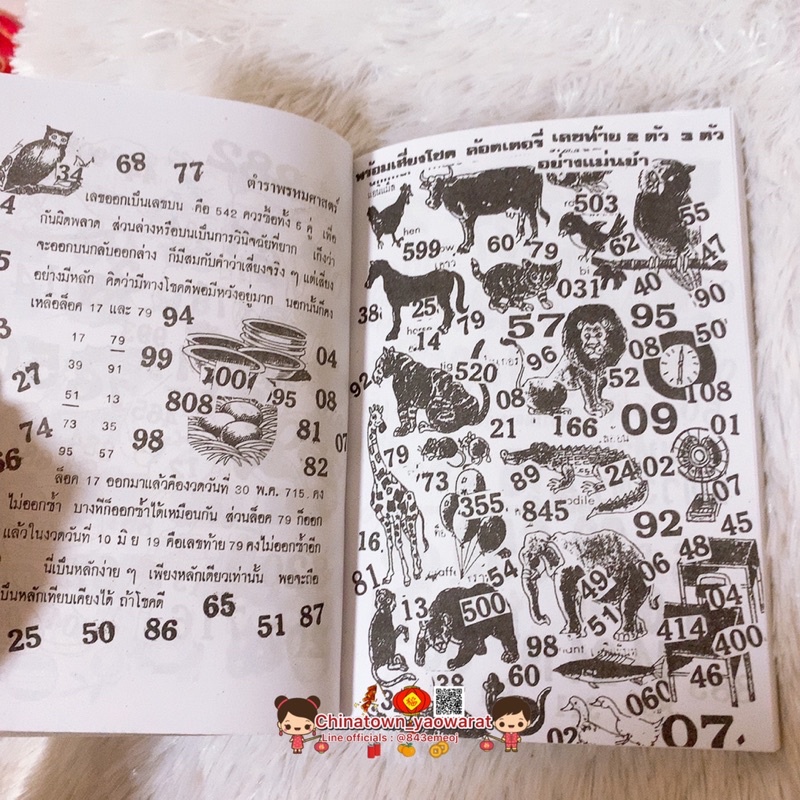 34
68 77
ตำราพรหมศาสตร์
เลขออกเป็นเลขบน คือ 542 ควรซื้อทั้ง 6 คู่ เพื่อ
กันผิดพลาด ส่วนล่างหรือบนเป็นการวินิจฉัยที่ยาก เก็งว่า
จะออกบนกลับออกล่าง ก็มีสมกับคำว่าเสี่ยงจริง ๆ แต่เสี่ยง
อย่างมีหลัก คิดว่ามีทางโชคดีพอมีหวังอยู่มาก นอกนั้นก็คง
เหลือล็อค 17 และ 79 94
17 79
99 04
39 91
27
1001 95 08
51 13
808
74 73 35 98 81 07
95 57 82
ล็อค 17 ออกมาแล้วคืองวดวันที่ 30 พ.ค. 715 คง
ไม่ออกซ้ำ บางทีก็ออกซ้ำได้เหมือนกัน ส่วนล็อค 79 ก็ออก
แล้วในงวดวันที่ 10 มิ ย 19 คือเลขท้าย 79 คงไม่ออกซ้ำอีก
นี่เป็นหลักง่าย ๆ เพียงหลักเดียวเท่านั้น พอจะถือ
เป็นหลักเทียบเคียงได้ ถ้าโชคดี
65
25 50 86 51 87
พร้อมเสี่ยงโชค ล๊อตเตอรี่ เลขท้าย 2 ตัว 3 ตัว
อย่างแม่นยำ
503 55
hen
599 60 79 62 47
031 40 90
38 25 79 57 95 50
14 96 08
92 520 52 108
08 09 01
21 166
79 73 89 24 02 07
355 845 92 45
16 48
81 54 49 06 04
13 500 51 414 400
98 46
60 060
02 07.
Chinatown yaowarat
Line officials : @843emeoj